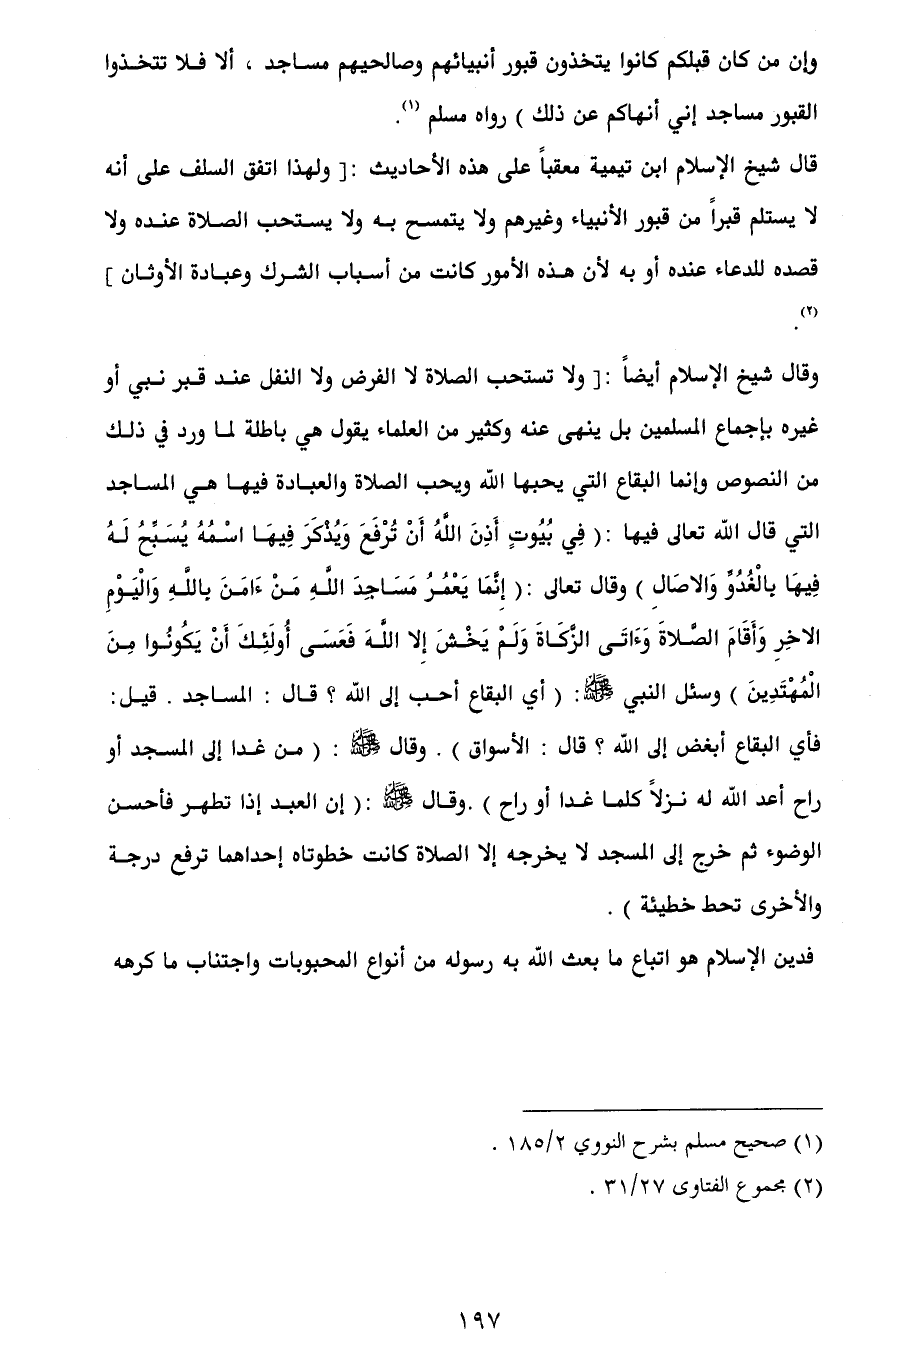 وإن من كان قبلكم كانوا يتخذون قبور أنبيائهم وصالحيهم مساجد ، ألا فلا تتخذوا
القبور مساجد إني أنهاكم عن ذلك ) رواه مسلم (١).
قال شيخ الإسلام ابن تيمية معقباً على هذه الأحاديث :[ ولهذا اتفق السلف على أنه
لا يستلم قبراً من قبور الأنبياء وغيرهم ولا يتمسح به ولا يستحب الصلاة عنده ولا
قصده للدعاء عنده أو به لأن هذه الأمور كانت من أسباب الشرك وعبادة الأوثان ]
(٢).
وقال شيخ الإسلام أيضاً :[ ولا تستحب الصلاة لا الفرض ولا النفل عند قبر نبي أو
غيره بإجماع المسلمين بل ينهى عنه وكثير من العلماء يقول هي باطلة لما ورد في ذلك
من النصوص وإنما البقاع التي يحبها الله ويحب الصلاة والعبادة فيها هي المساجد
التي قال الله تعالى فيها :( فِي بُيُوتٍ أَذِنَ اللَّهُ أَنْ تُرْفَعَ وَيُذْكَرَ فِيهَا اسْمُهُ يُسَبِّحُ لَهُ
فِيهَا بِالْغُدُوِّ وَالاصَالِ ) وقال تعالى :( إِنَّمَا يَعْمُرُ مَسَاجِدَ اللَّهِ مَنْ ءَامَنَ بِاللَّهِ وَالْيَوْمِ
الاخِرِ وَأَقَامَ الصَّلاةَ وَءَاتَى الزَّكَاةَ وَلَمْ يَخْشَ إِلا اللَّهَ فَعَسَى أُولَئِكَ أَنْ يَكُونُوا مِنَ
الْمُهْتَدِينَ ) وسئل النبي ﷺ: ( أي البقاع أحب إلى الله ؟ قال : المساجد . قيل:
فأي البقاع أبغض إلى الله ؟ قال : الأسواق ) . وقال ﷺ : ( من غدا إلى المسجد أو
راح أعد الله له نزلاً كلما غدا أو راح ) .وقال ﷺ :( إن العبد إذا تطهر فأحسن
الوضوء ثم خرج إلى المسجد لا يخرجه إلا الصلاة كانت خطوتاه إحداهما ترفع درجة
والأخرى تحط خطيئة ) .
فدين الإسلام هو اتباع ما بعث الله به رسوله من أنواع المحبوبات واجتناب ما كرهه
(١) صحيح مسلم بشرح النووي ١٨٥/٢ .
(٢) مجموع الفتاوى ٣١/٢٧ .
١٩٧